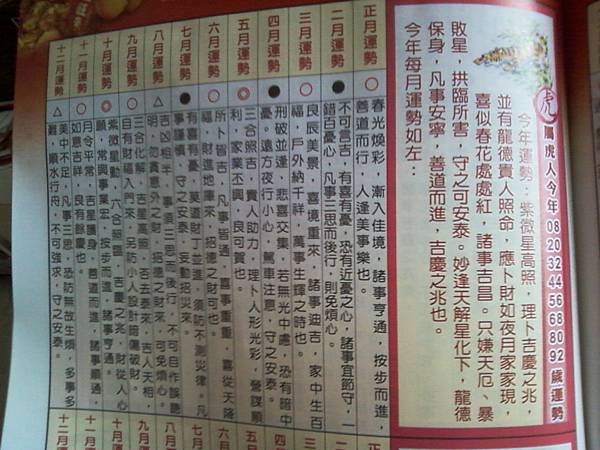 虎
屬虎人今年 08 20 32 44 56 68 80 92 歲運勢
今年運勢：紫微星高照，理卜吉慶之兆，
並有龍德貴人照命，應卜財如夜月家家現，
喜似春花處處紅，諸事吉昌。只嫌天厄、暴
敗星，拱臨所害，守之可安泰。妙逢天解星化下，龍德
保身，凡事安寧，善道而進，吉慶之兆也。
今年每月運勢如左：
正月運勢 ○ 春光煥彩，漸入佳境，諸事亨通，按步而進，
善道而行，人逢美事樂也。
二月運勢 ● 不可言吉，有喜有憂，恐有近憂之心，諸事宜節守，一
錯百憂心，凡事三思而後行，則免煩心。
三月運勢 ○ 良辰美景，喜境重來，諸事迪吉，家中生百
福，戶外納千祥，萬事生輝之時也。
四月運勢 ● 刑破並逢，悲喜交集，若無光中慮，恐有暗中
憂。遠方夜行小心，駕車注意，守之安泰。
五月運勢 ◎ 三合照吉，貴人助力，理卜人形光彩，營謀順
利，家業不興，良可賀也。
六月運勢 ○ 所卜皆吉，凡事皆通，喜事重重，喜從天降
福，財進地庫來，招德之財可也。
七月運勢 ● 有喜有憂，莫道財丁並進，須防不測災律。凡
事謹慎，守之安泰，妄動招災來。
八月運勢 △ 吉凶相半，事須三思而後行，不可自作誤聽
明，勿貪意外之財，招德之財來，可免煩心。
九月運勢 ○ 三合化解，吉星高照，否去泰來，吉人天相，
自有財福入門來，另防小人設計暗傷破財。
十月運勢 ◎ 紫微星動，六合照臨，吉慶之兆，財從人心
願，常興事業宏，按步而進，諸事亨通。
十一月運勢 ○ 月令平常，吉星護身，善道而進，諸事順通，
如意吉祥，良有餘慶也。
十二月運勢 △ 美中不足，凡事三思，恐防無故生煩，多事多
難，順水行舟，不可強求，守之安泰。
正
二月
三月
四月
五月
六月
七月運
八月運
九月運
十月運勢
十一月運
十二月運勢